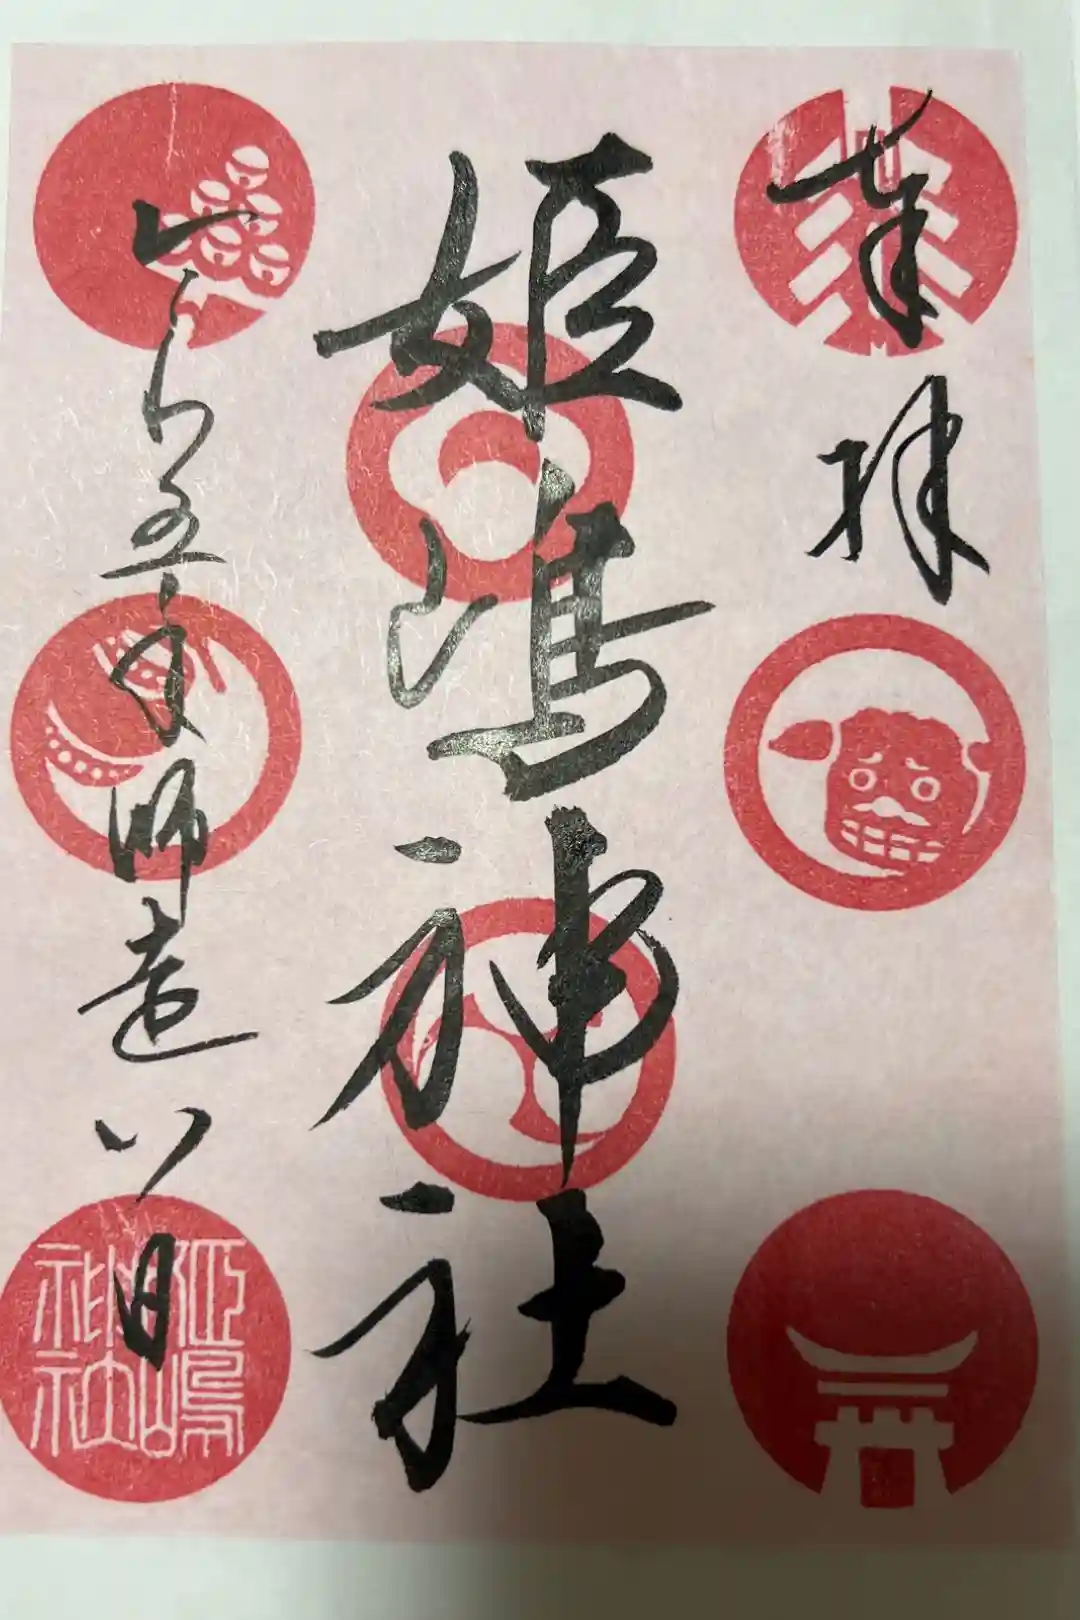 奉拝
姫嶋神社
令和五年師走八日
姫嶋
神社